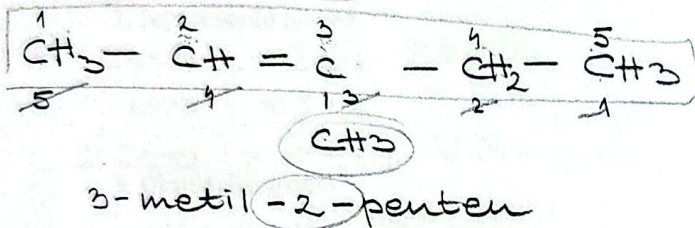 1 2 3 4 5
CH3 - CH = C - CH2 - CH3
5 4 | 3 2 1
CH3
3-metil-2-penten